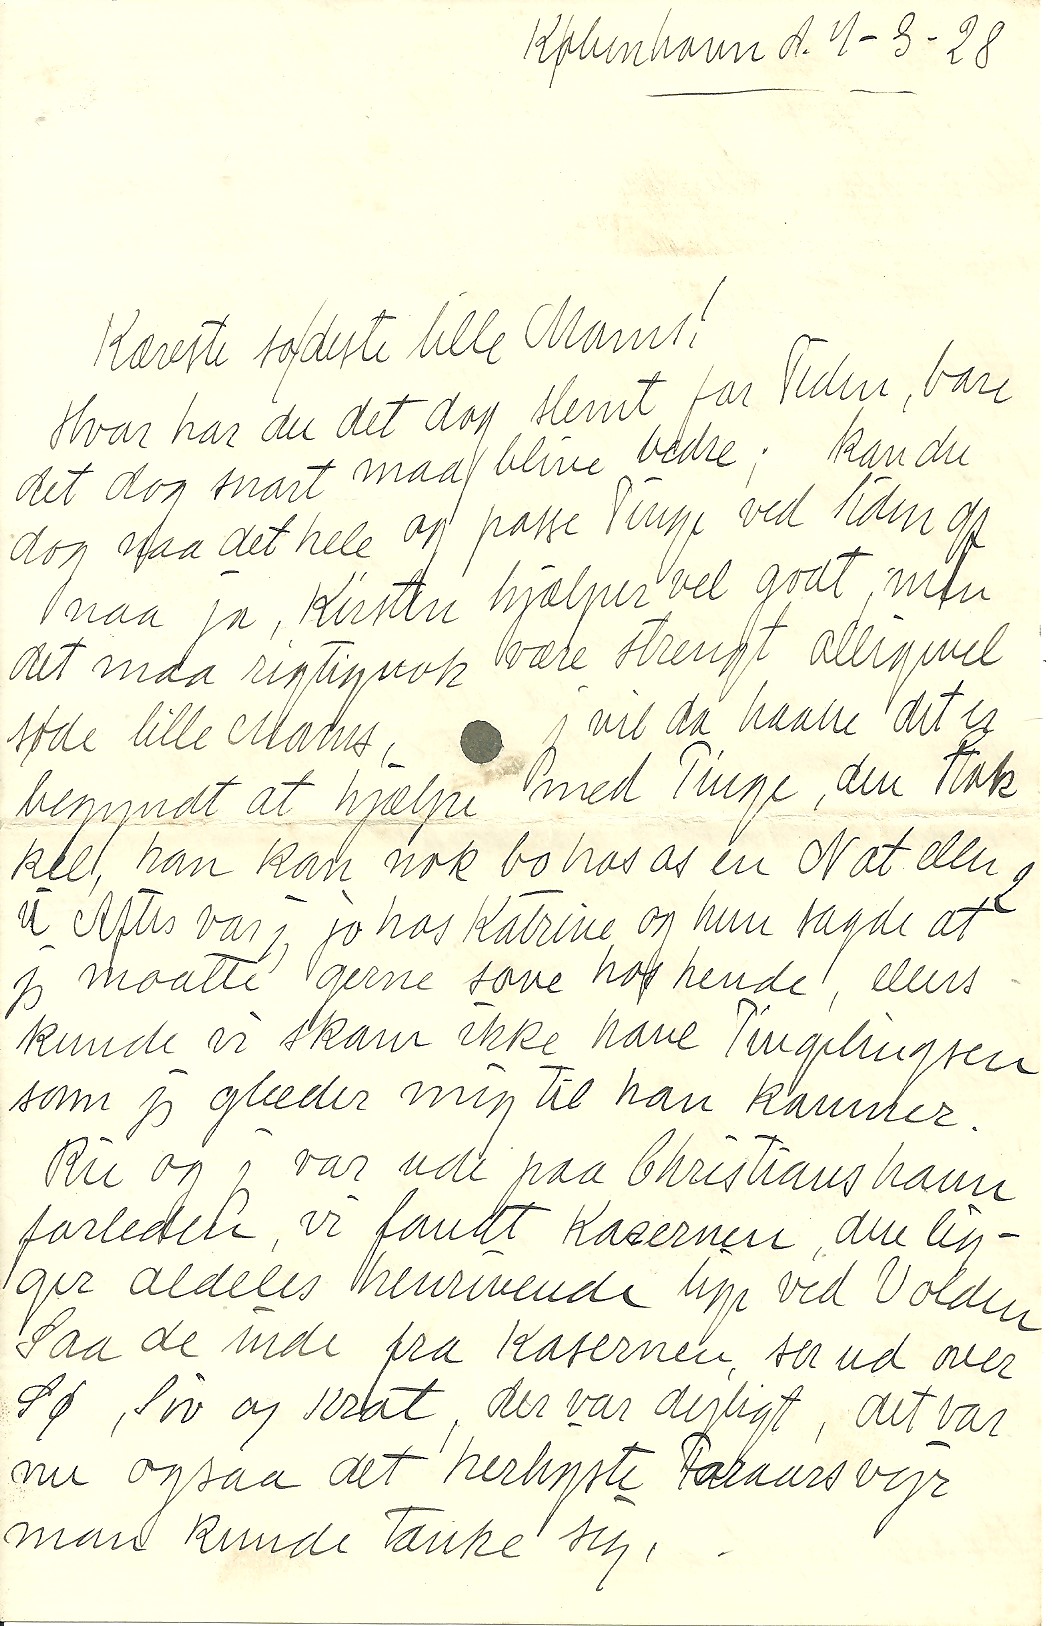 København d. 4-3-28
Kæreste sødeste lille Mams!
Hvor har du det dog slemt for Tiden, bare
det dog snart maa blive bedre; kan du
dog naa det hele og passe Tinge ved Siden af
naa ja, Kirsten hjælper vel godt, men
det maa rigtignok være strengt alligevel
søde lille Mams, j vil da haabe det er
begyndt at hjælpe med Tinge, den Stak
kel, han kan nok bo hos os en Nat eller 2
i Aftes var j jo hos Katrine og hun sagde at
jg maatte gerne sove hos hende, ellers
kunde vi skam ikke have Tingelingsen
som jg glæder mig til han kommer.
Rie og j var ude paa Christianshavn
forleden, vi fandt Kasernen, den lig-
ger aldeles henrivende lige ved Volden
Saa de inde fra Kasernen, ser ud over
Sø, Siv og Krat, der var dejligt, det var
nu ogsaa det herligste Foraarsvejr
man kunde tænke sig.